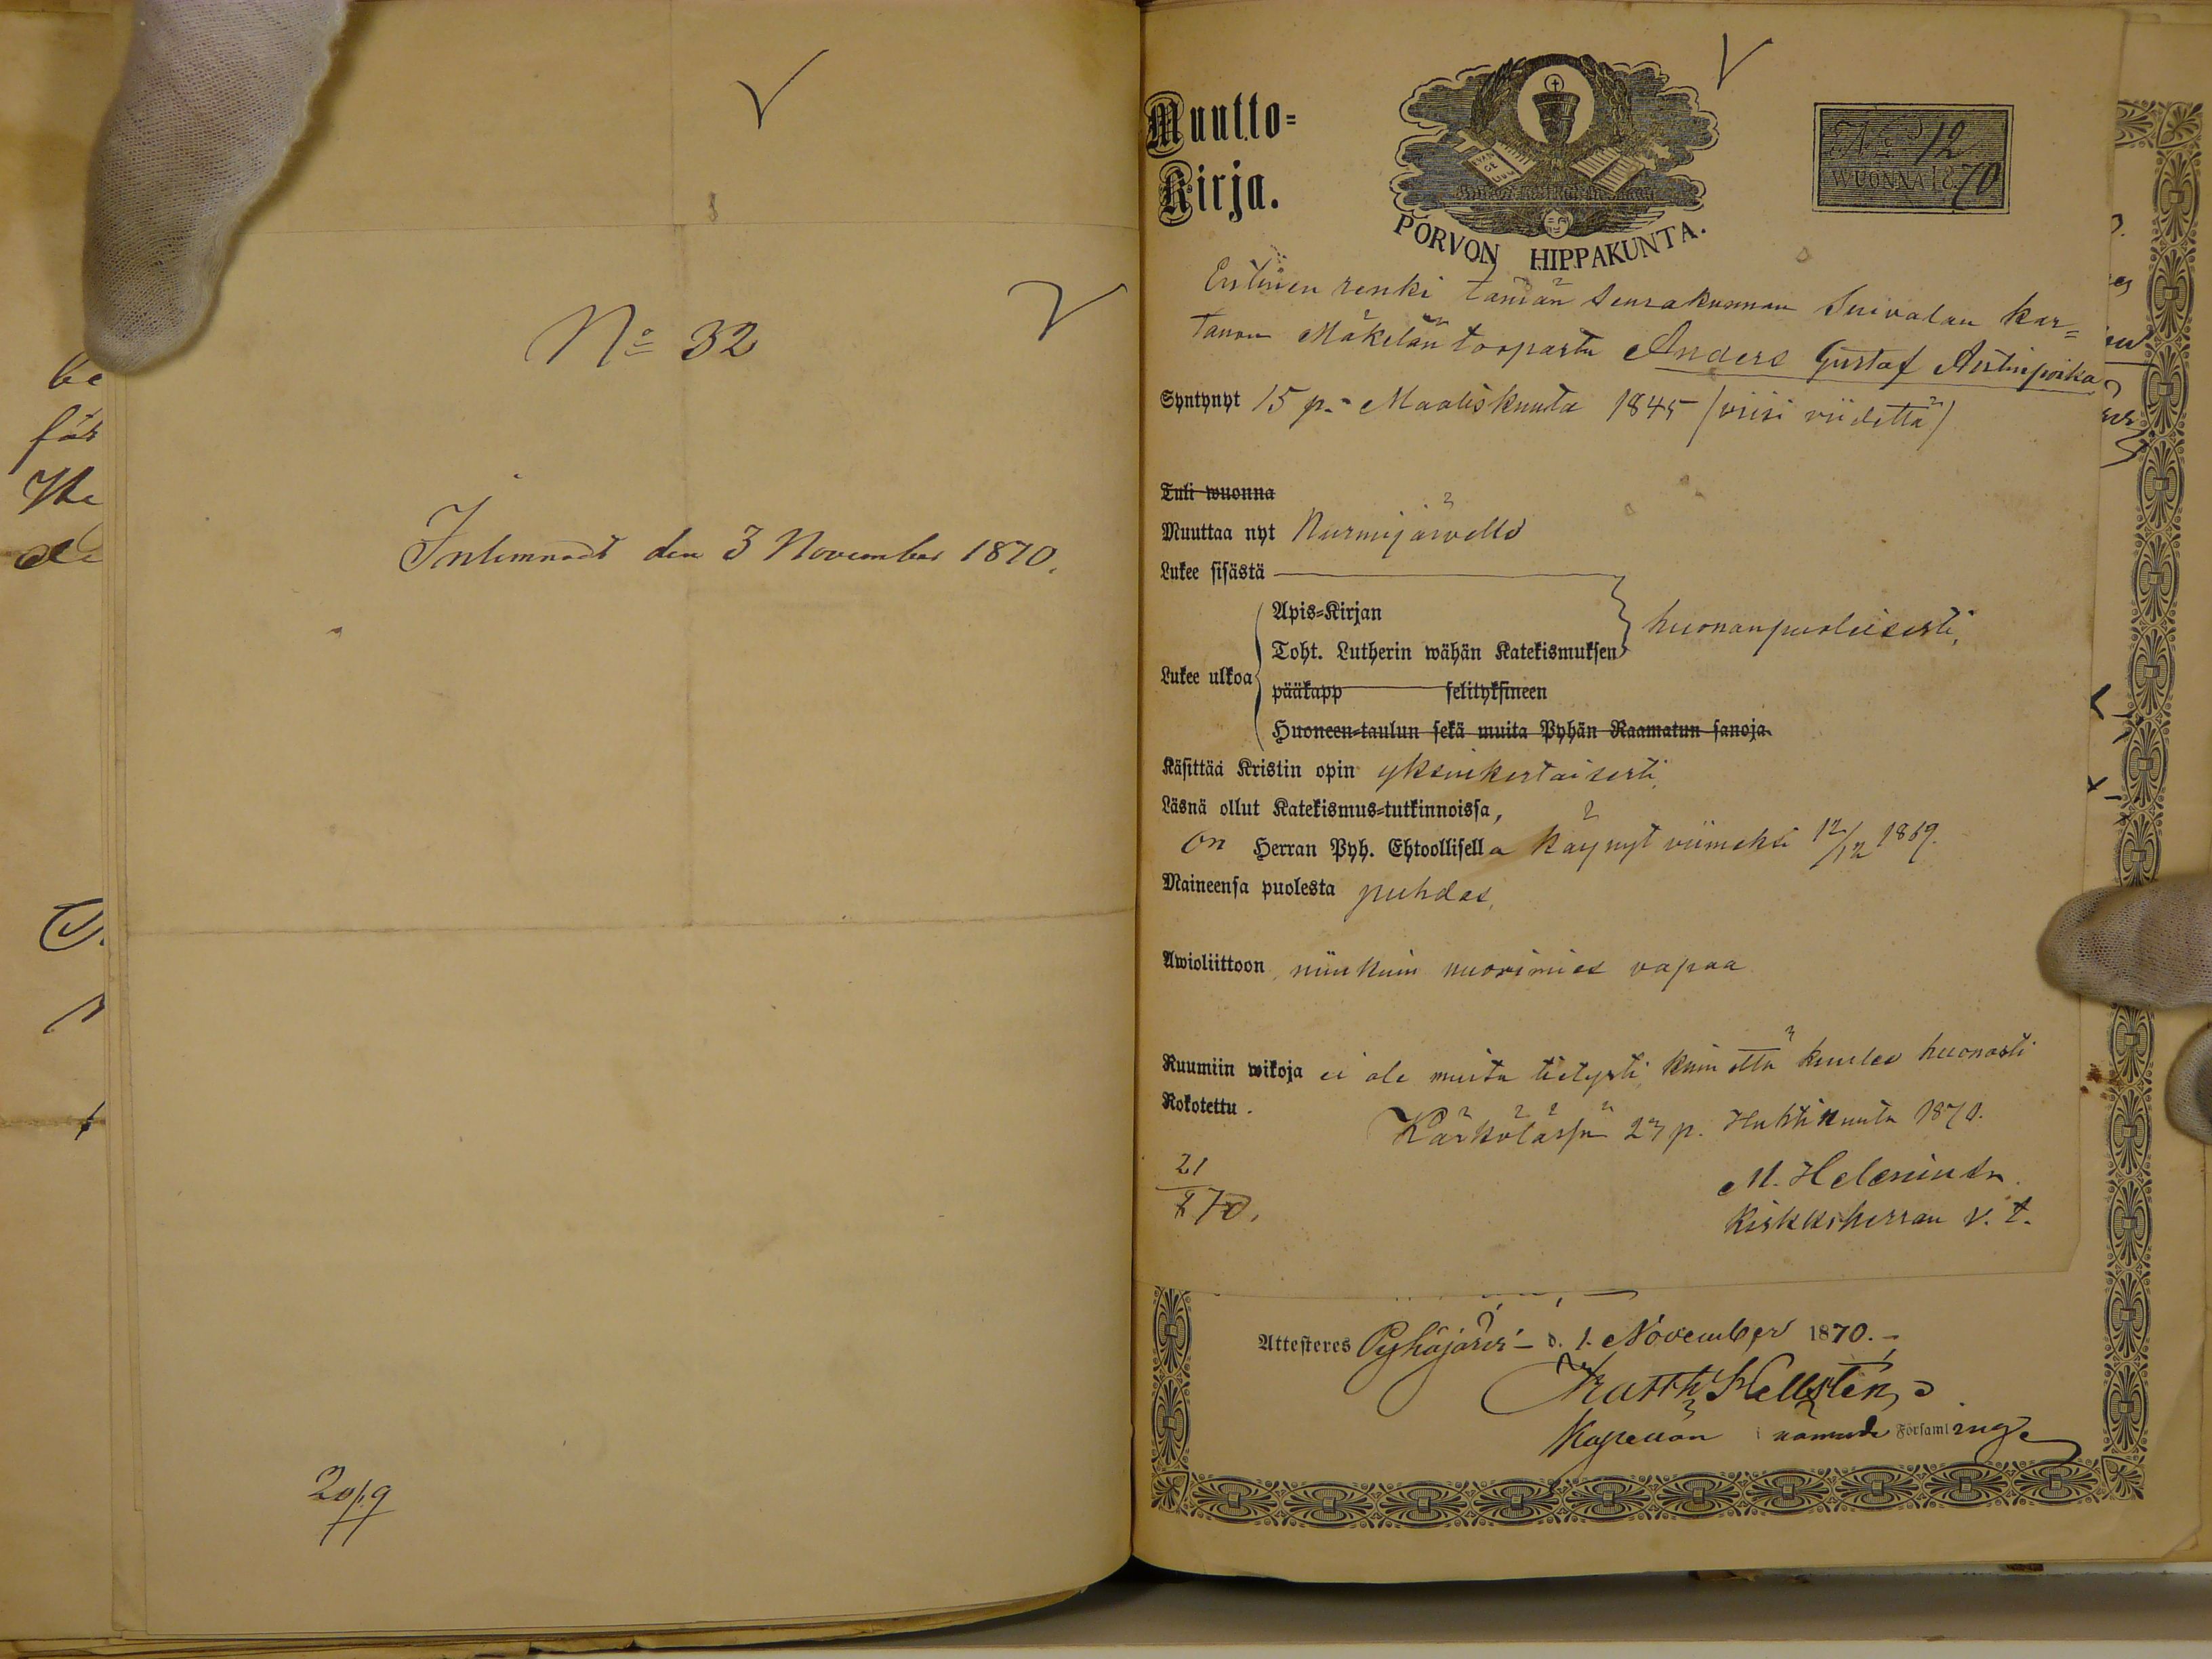 be
för
№ 32
Inlemnadt den 3 November 1870.
20/9
Muutto=
Kirja.
PORVON HIPPAKUNTA.
No 12
WUONNA 1870
Entinen renki tämän Seurakunnan Suivalan kar=
tanon Mäkelän torpasta Anders Gustaf Antinpoika
Syntynyt 15 p. Maaliskuuta 1845 (viisi viidettä)
Tuli wuonna
Muuttaa nyt Nurmijärvelle
Lukee sisästä
Apis=Kirjan
huonanpuolisesti,
Toht. Lutherin wähän Katekismuksen
Lukee ulkoa
pääkapp selityksineen
Huoneen=taulun sekä muita Pyhän Raamatun sanoja
Käsittää Kristin opin yksinkertaisesti,
Läsnä ollut Katekismus=tutkinnoissa,
on Herran Pyh. Ehtoollisella käynyt viimeksi 12/12 1869.
Maineensa puolesta puhdas,
Awioliittoon niinkuin nuorimies vapaa
Ruumiin wikoja ei ole muita tietysti, kuin että kuulee huonosti
Rokotettu.
Kärkölässä 27 p. Huhtikuuta 1870.
21
8 70.
M. Helenius
Kirkkoherran v. t.
Attesteres Pyhäjärvi d. 1. November 1870.
Matth Hellstén
Kapellan i nämnde Församling